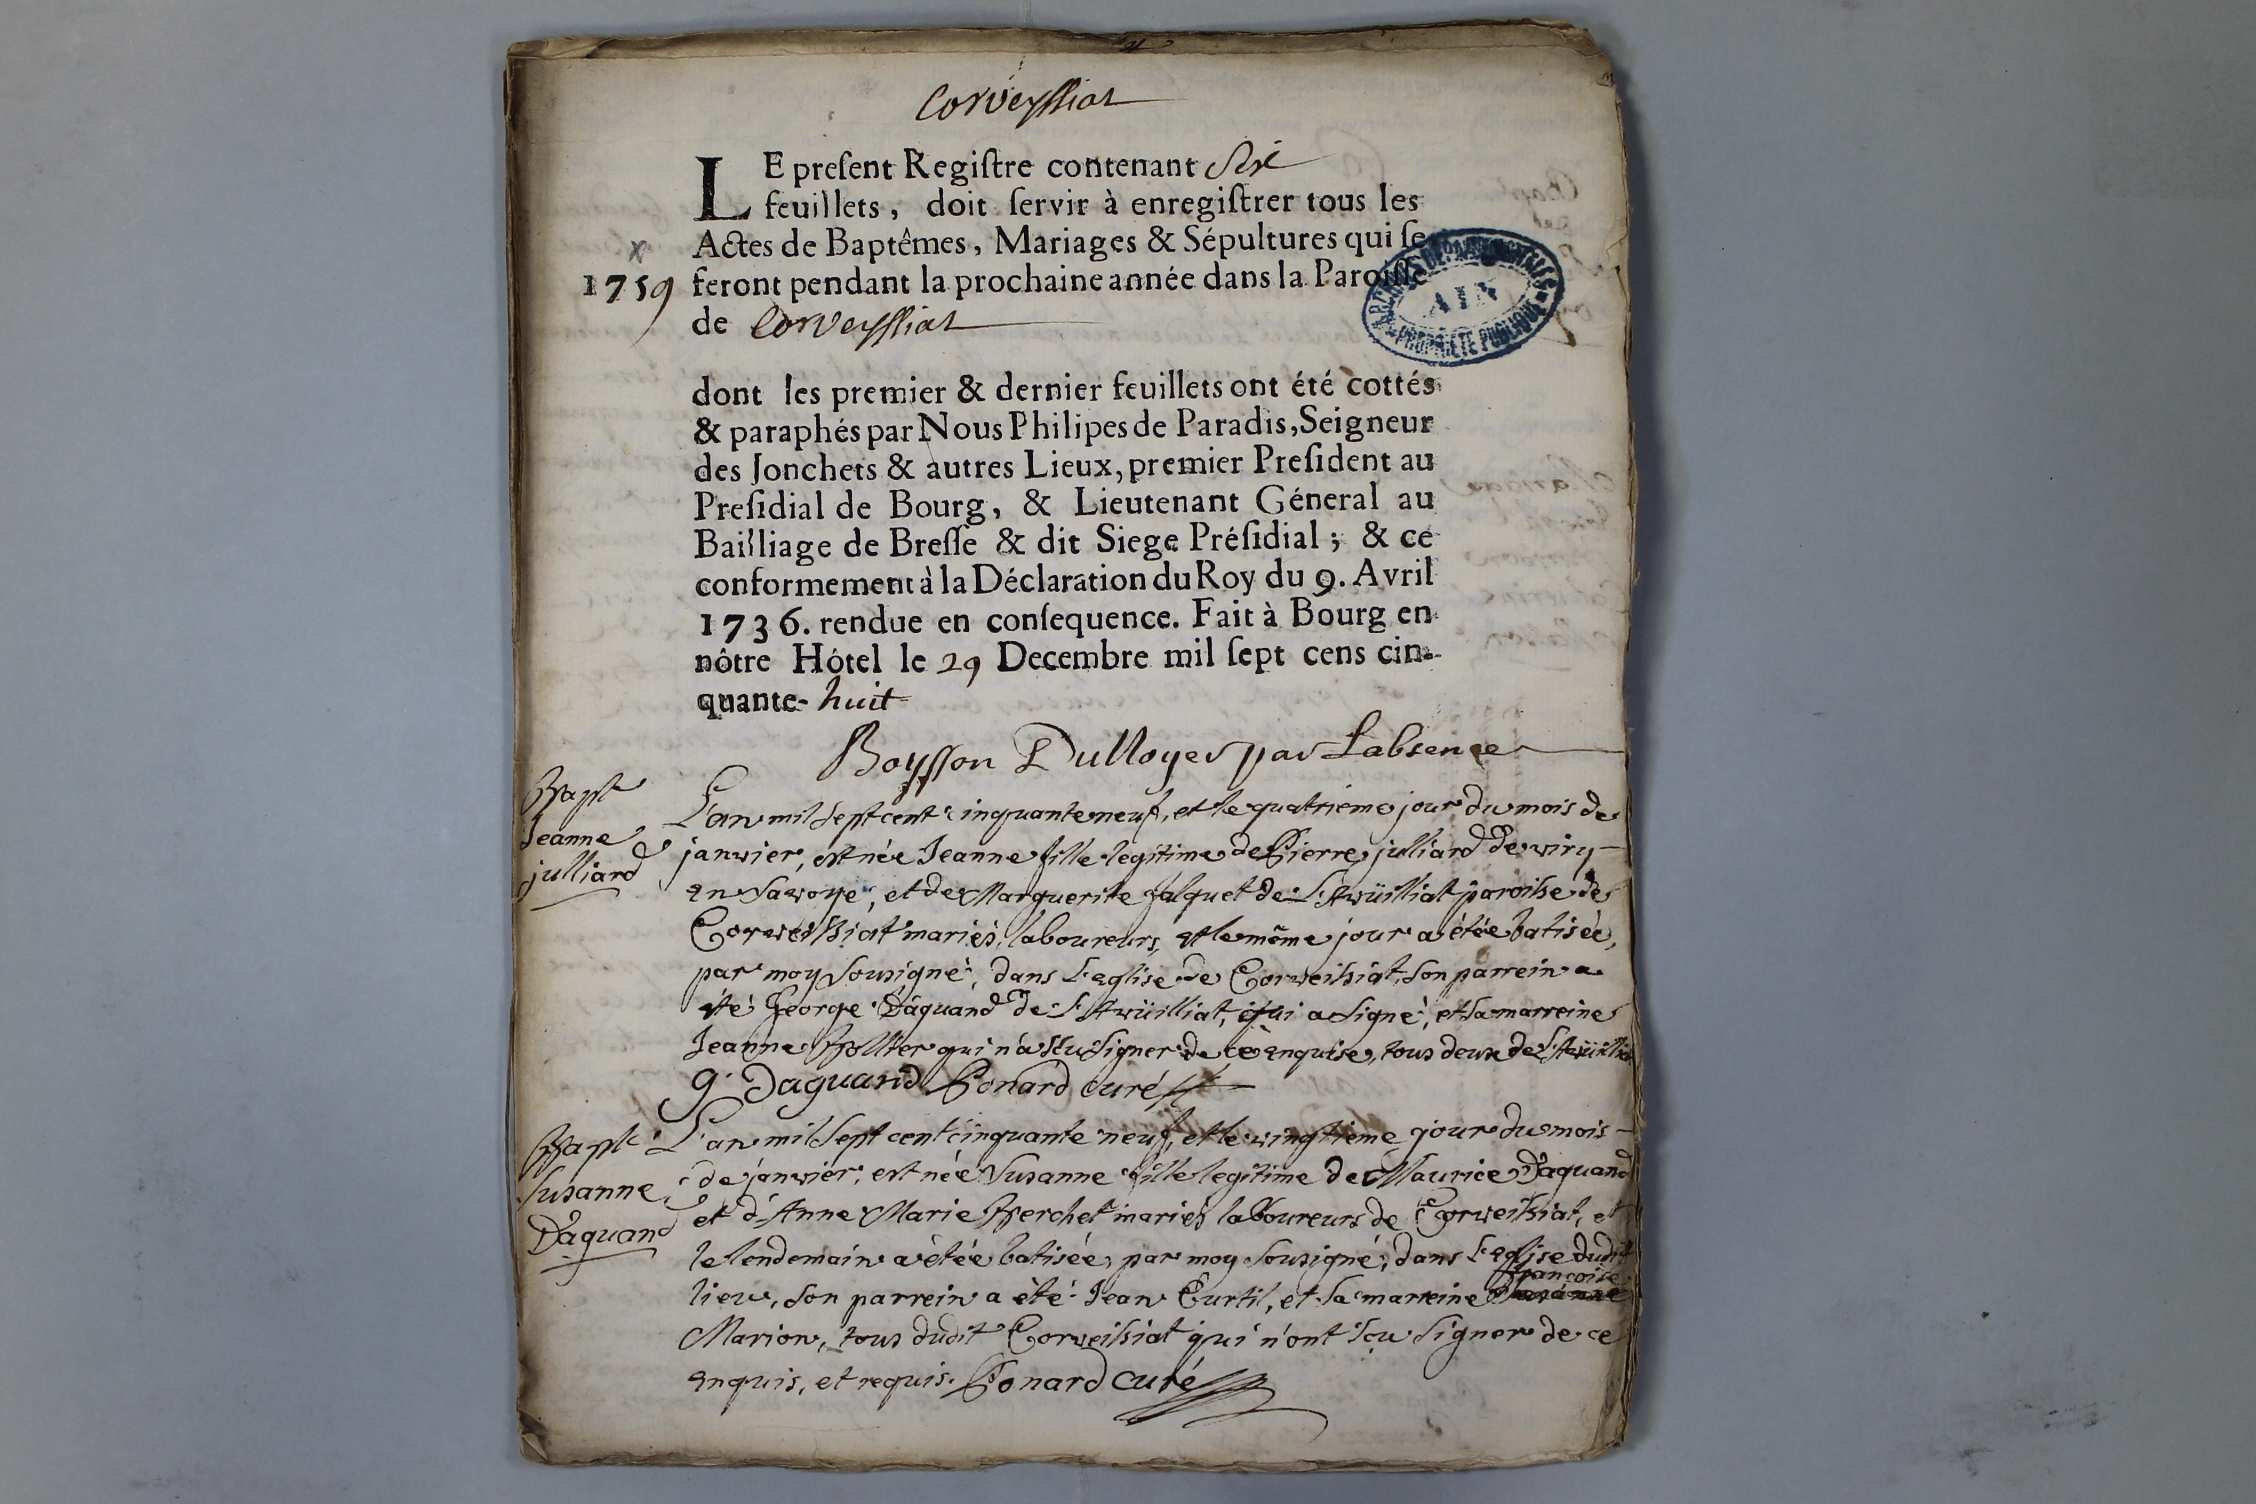 Corveyssiat
LE preſent Regiſtre contenant Six
feuillets, doit ſervir à enregiſtrer tous les
Actes de Baptêmes, Mariages & Sépultures qui ſe
1759
feront pendant la prochaine année dans la Paroiſſe
de Corveyssiat
ARCHIVES DÉPARTEMENTALES
AIN
PROPRIÉTÉ PUBLIQUE
dont les premier & dernier feuillets ont été cottés
& paraphés par Nous Philipes de Paradis, Seigneur
des Jonchets & autres Lieux, premier Preſident au
Preſidial de Bourg, & Lieutenant Géneral au
Bailliage de Breſſe & dit Siege Préſidial; & ce
conformement à la Déclaration du Roy du 9. Avril
1736. rendue en conſequence. Fait à Bourg en
nôtre Hôtel le 29 Decembre mil ſept cens cin-
quante-huit
Boysson Dulloyer par Labsence
Bapt
Jeanne
julliard
L'an mil sept cent cinquante neuf, et le quatrieme jour du mois de
janvier, est née Jeanne fille legitime de Pierre julliard de viry
en Savoye, et de Marguerite falquet de St Awüilliat paroisse de
Corveissiat mariés, laboureurs, et le même jour a étée batisée,
par moy sousigné, dans L'eglise de Corveissiat, son parrein a
été George Daquand de St Awüilliat, qui a signé, et sa marreine
Jeanne Pollier qui n'a scu signer de ce enquise, tous deux de St Awüilliat
g. Daquand Ponard curé
Bapt
Susanne
Daquand
L'an mil sept cent cinquante neuf, et le vingtieme jour du mois
de janvier, est née Susanne fille legitime de Maurice Daquand
et d'Anne Marie Perchet mariés laboureurs de Corveissiat, et
le lendemain a étée batisée, par moy sousigné, dans L'eglise dudit
françoise
lieu, son parrein a été Jean Curtil, et sa marreine
Marion, tous dudit Corveissiat qui n'ont scu signer de ce
enquis, et requis. Ponard curé